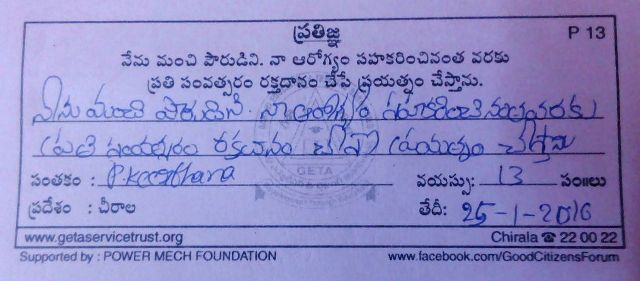 ప్రతిజ్ఞ P 13
నేను మంచి పౌరుడిని. నా ఆరోగ్యం సహకరించినంత వరకు
ప్రతి సంవత్సరం రక్తదానం చేసే ప్రయత్నం చేస్తాను.
నేను మంచి పౌరుడిని. నా ఆరోగ్యం సహకరించినంతవరకు
ప్రతి సంవత్సరం రక్తదానం చేసే ప్రయత్నం చేస్తాను
సంతకం : P.Keerthana వయస్సు: 13 సం॥లు
ప్రదేశం : చీరాల తేదీ: 25-1-2016
GETA
www.getaservicetrust.org Chirala ☎ 22 00 22
Supported by : POWER MECH FOUNDATION www.facebook.com/GoodCitizensForum